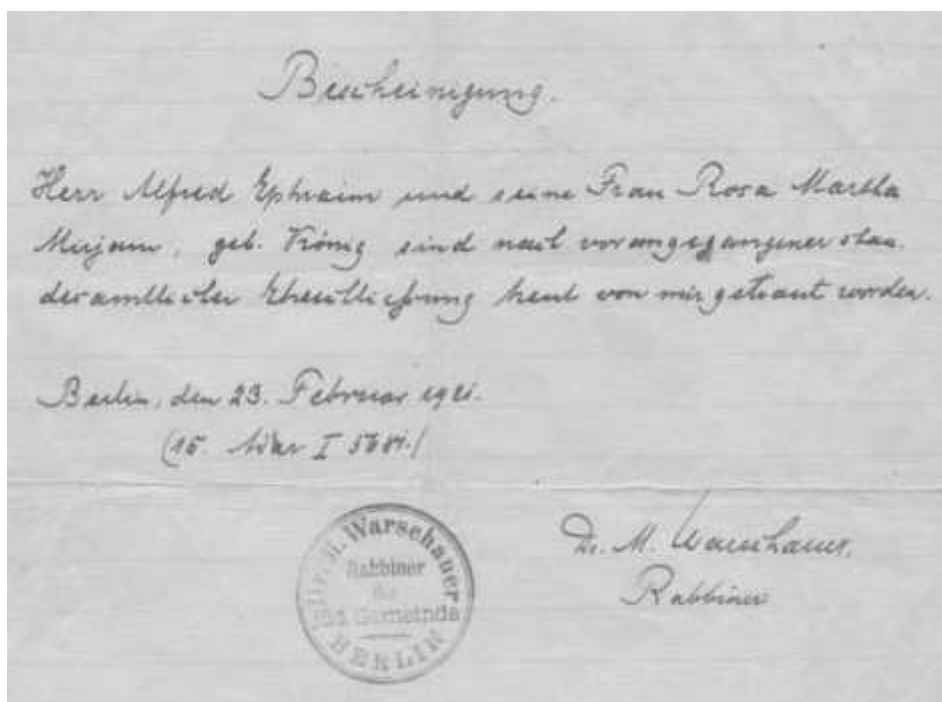 Bescheinigung.
Herr Alfred Ephraim und seine Frau Rosa Martha
Mirjam, geb. König sind nach vorangegangener stan-
desamtlicher Eheschließung heut von mir getraut worden.
Berlin, den 23. Februar 1921.
(15. Adar I 5681.)
Dr. M. Warschauer
Rabbiner
der
Jüd. Gemeinde
BERLIN
Dr. M. Warschauer,
Rabbiner